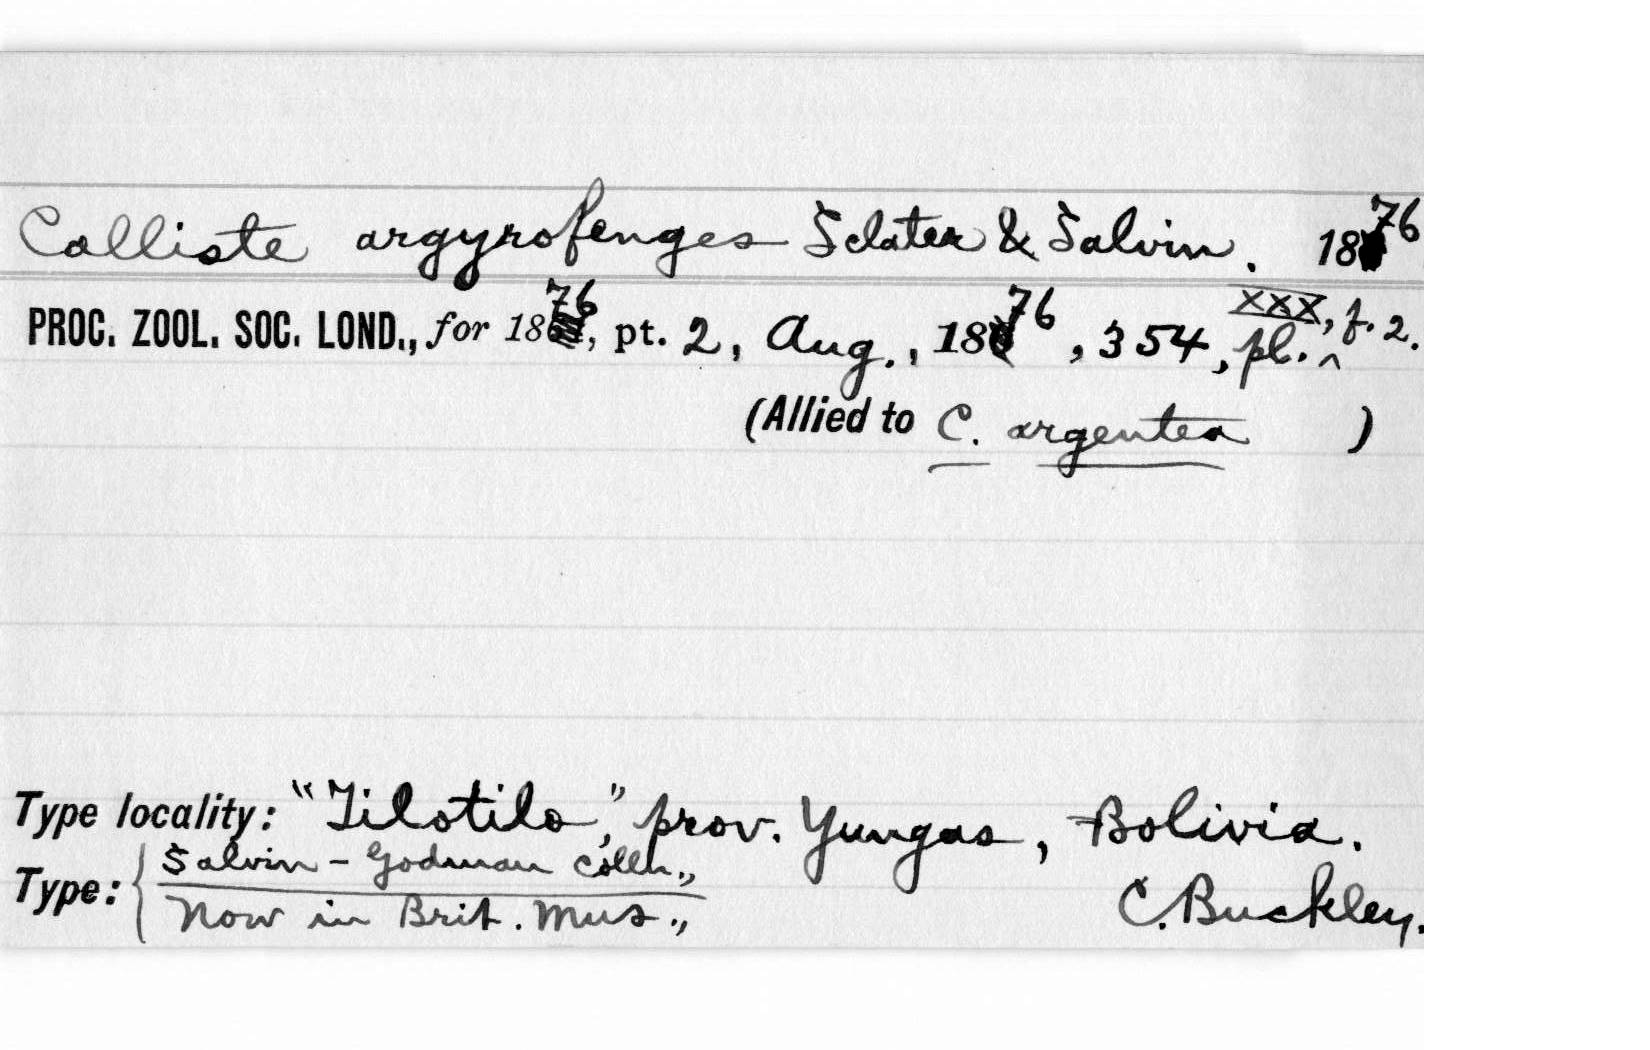 Calliste argyrofenges Sclater & Salvin. 1876
PROC. ZOOL. SOC. LOND., for 1876, pt. 2, Aug., 1876, 354, pl. XXX, f. 2.
(Allied to C. argentea )
Type locality: "Tilotilo," prov. Yungas, Bolivia.
Type: { Salvin-Godman Colln.,
Now in Brit. Mus., C. Buckley.